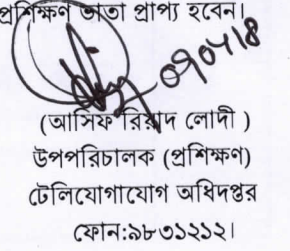 প্রশিক্ষণ ভাতা প্রাপ্য হবেন।
(আসিফ রিয়াদ লোদী )
উপপরিচালক (প্রশিক্ষণ)
টেলিযোগাযোগ অধিদপ্তর
ফোন:৯৮৩১২১২।